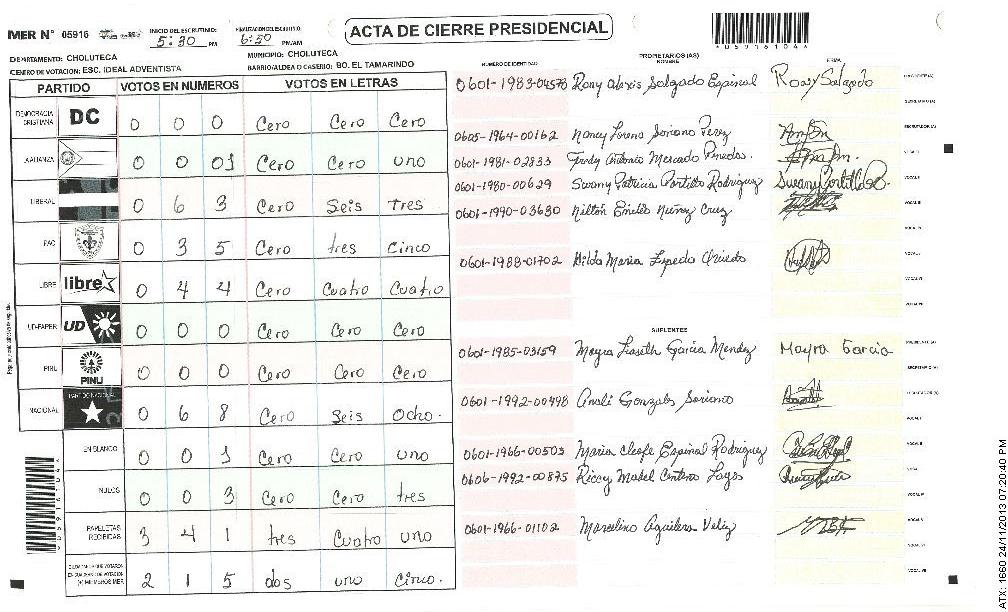 MER N° 05916 INICIO DEL ESCRUTINIO: 5:30 PM FINALIZACION DEL ESCRUTINIO 6:50 PM/AM ACTA DE CIERRE PRESIDENCIAL
*05916104*
DEPARTAMENTO: CHOLUTECA MUNICIPIO: CHOLUTECA
CENTRO DE VOTACION: ESC. IDEAL ADVENTISTA BARRIO/ALDEA O CASERIO: BO. EL TAMARINDO
PARTIDO VOTOS EN NUMEROS VOTOS EN LETRAS
DEMOCRACIA CRISTIANA DC 0 0 0 Cero Cero Cero
ALIANZA 0 0 01 Cero Cero uno
LIBERAL 0 6 3 Cero Seis Tres
PAC 0 3 5 Cero tres Cinco
LIBRE libre 0 4 4 Cero Cuatro Cuatro
UD-FAPER UD 0 0 0 Cero Cero Cero
PINU PINU 0 0 0 Cero Cero Cero
NACIONAL PARTIDO NACIONAL 0 6 8 Cero Seis Ocho.
EN BLANCO 0 0 1 Cero Cero uno
NULOS 0 0 3 Cero Cero tres
PAPELETAS RECIBIDAS 3 4 1 tres Cuatro uno
2 1 5 dos uno Cinco.
NUMERO DE IDENTIDAD PROPIETARIOS (AS) NOMBRE FIRMA
0601-1983-04578 Rony Alexis Salgado Espinal Rony Salgado PRESIDENTE (A)
SECRETARIO (A)
0605-1964-00162 Nancy Lorena Soriano Perez ESCRUTADOR (A)
0601-1981-02833 Fredy Antonio Mercado Pinedas. VOCAL I
0601-1980-00629 Swamy Patricia Portillo Rodriguez Swamy Portillo R. VOCAL II
0601-1990-03630 Nilton Nuñez Cruz VOCAL III
VOCAL IV
0601-1988-01702 Hilda Maria Oviedo VOCAL V
VOCAL VI
VOCAL VII
SUPLENTES
0601-1985-03159 Mayra Lisseth Garcia Mendez Mayra Garcia PRESIDENTE (A)
SECRETARIO (A)
0601-1992-00498 Anali Gonzales Soriano ESCRUTADOR (A)
VOCAL I
0601-1966-00503 Maria Cleofe Espinal Rodriguez VOCAL II
0606-1992-00875 Riccy Mabel Centeno Lagos
VOCAL IV
0601-1966-01102 Marcelino Aguilera Veliz VOCAL V
VOCAL VI
VOCAL VII
ATX: 1660 24/11/2013 07:20:40 PM